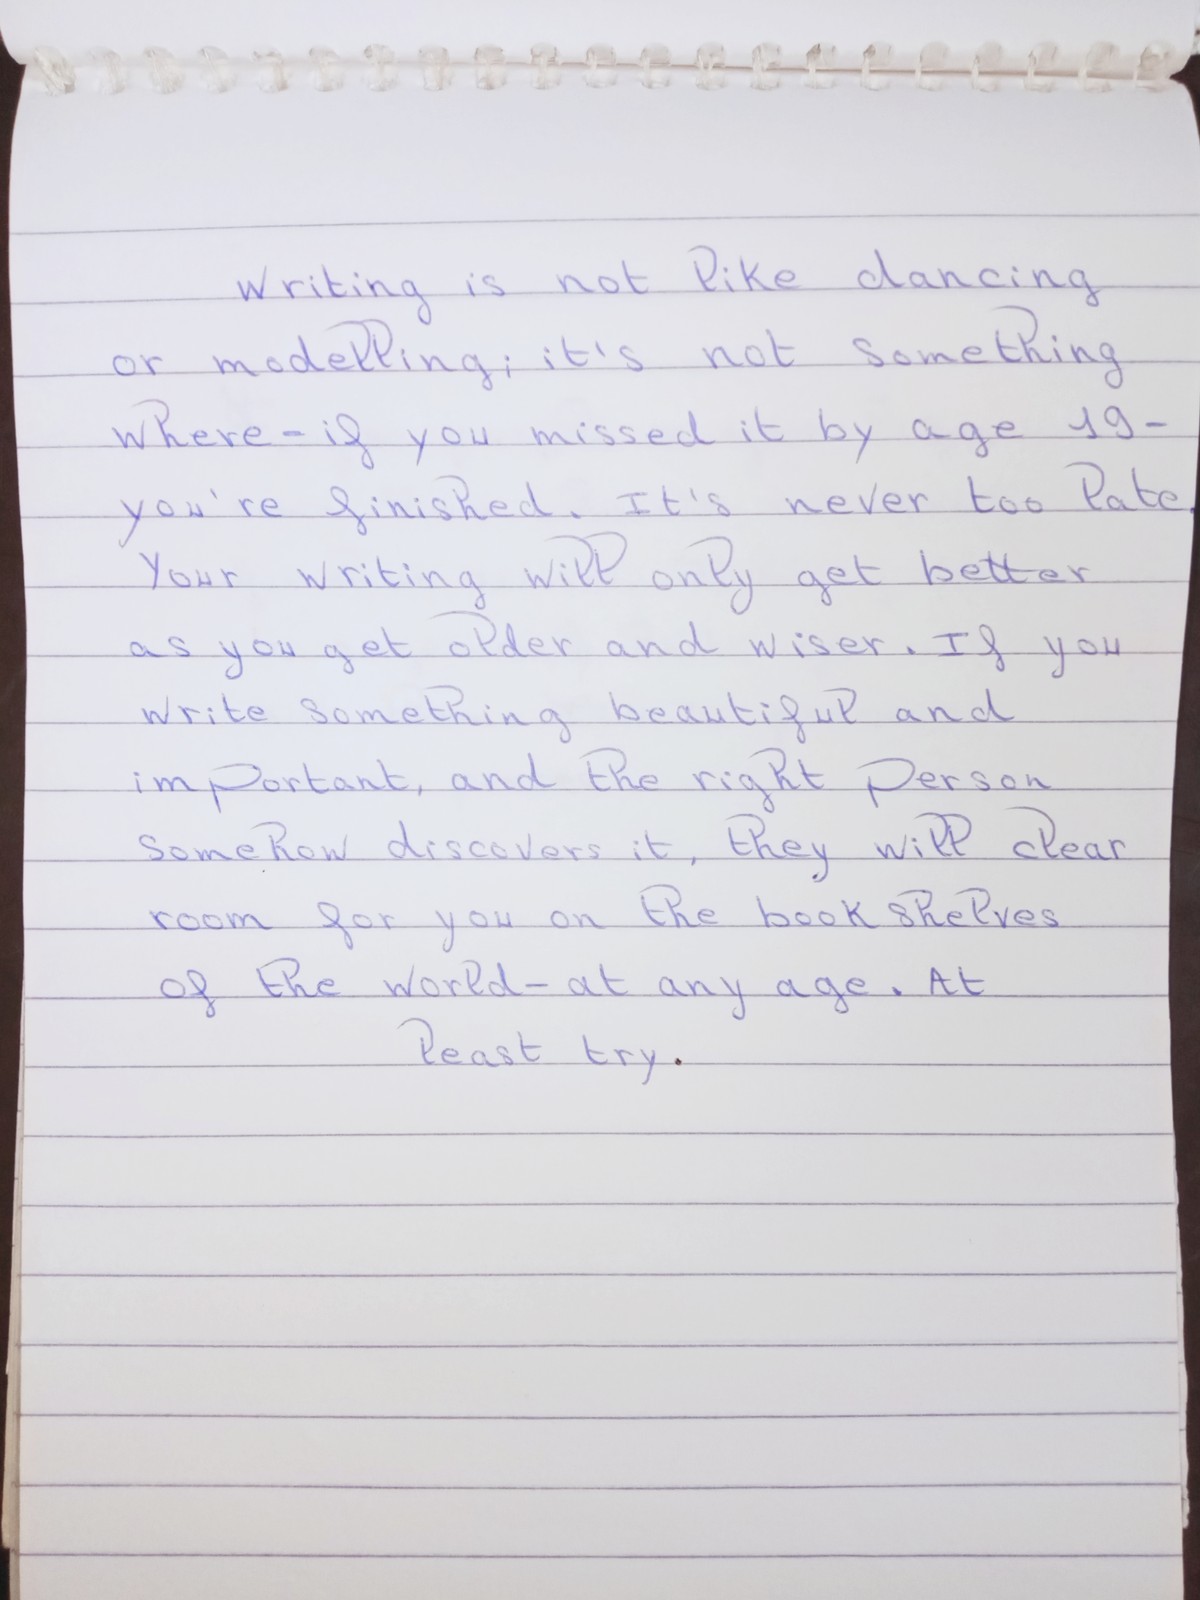 Writing is not like dancing
or modelling; it's not something
where - if you missed it by age 19 -
you're finished. It's never too late.
Your writing will only get better
as you get older and wiser. If you
write something beautiful and
important, and the right person
somehow discovers it, they will clear
room for you on the book shelves
of the world - at any age. At
least try.